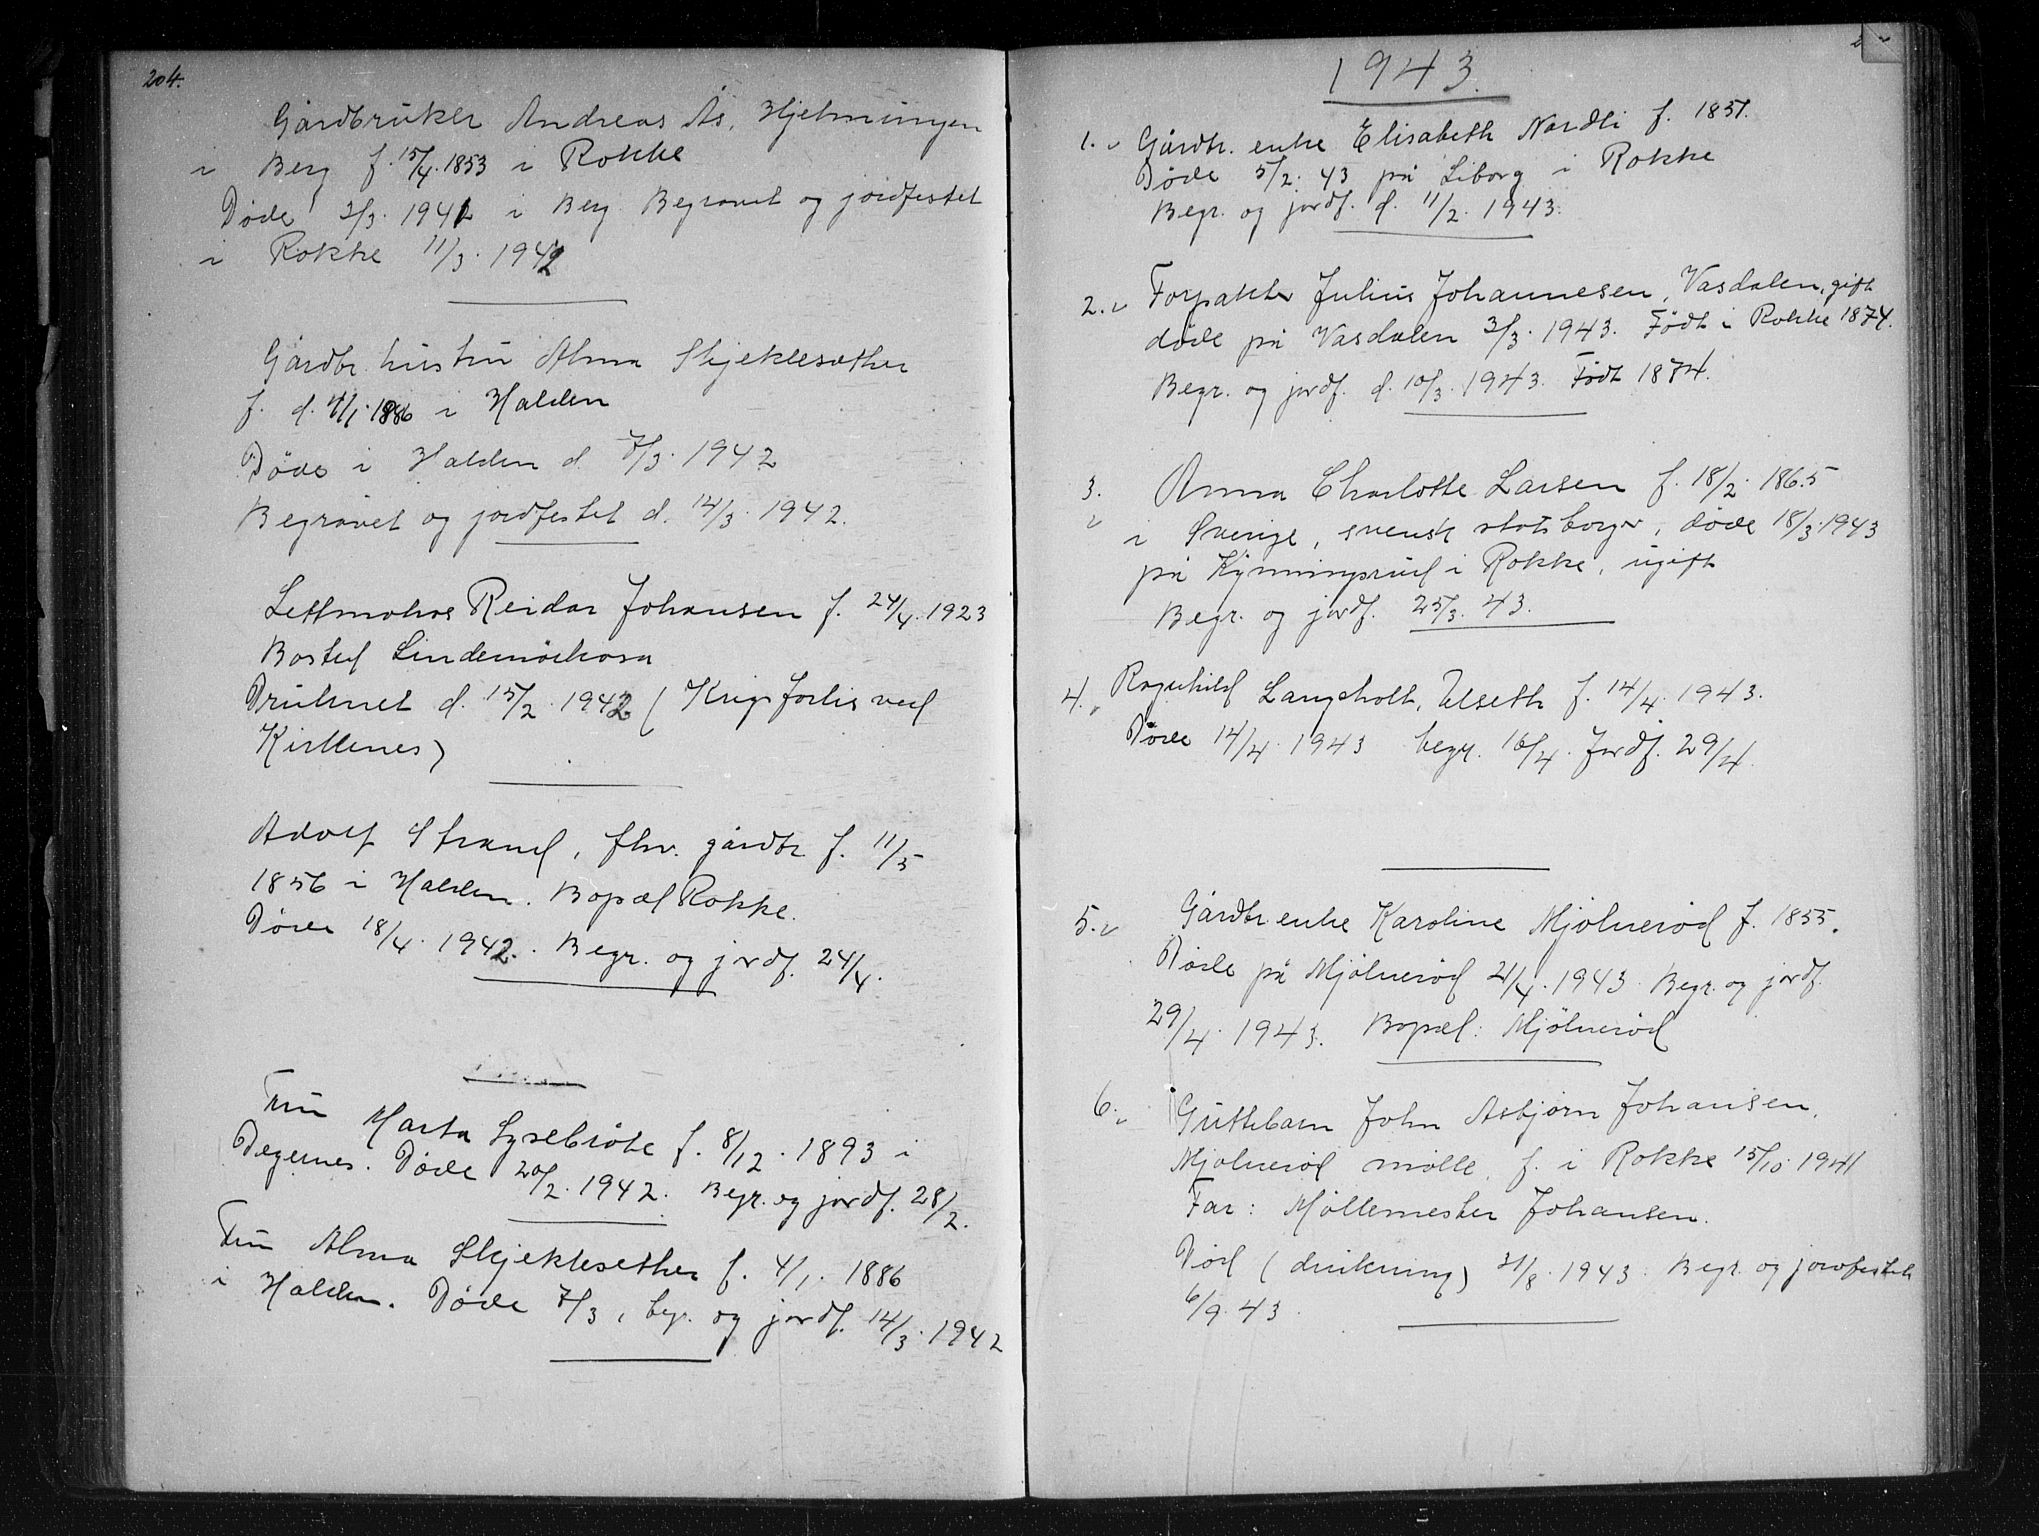 204.
Gårdbruker Andreas Ås, Hjelmungen
i Berg f. 15/4. 1853 i Rokke
Døde 3/3. 1942 i Berg. Begravet og jordfestet
i Rokke 11/3. 1942
Gårdbr. hustru Alma Skjeklesæther
f. d. 4/1. 1886 i Halden
Døde i Halden d. 7/3. 1942
Begravet og jordfestet d. 14/3. 1942.
Lettmatros Reidar Johansen f. 24/4. 1923
Bosted
Druknet d. 15/2. 1942 (Krigsforlis ved
Kirkenes)
Adolf Strand, fhv. gårdbr. f. 11/5
1856 i Halden. Bopæl Rokke.
Døde 18/4. 1942. Begr. og jordf. 24/4.
Fru Marta Lysebråte f. 8/12. 1893 i
Degernes. Døde 20/2. 1942. Begr. og jordf. 28/2.
Fru Alma Skjeklesether f. 4/1. 1886
i Halden. Døde 7/3, begr. og jordf. 14/3. 1942
1943.
1. Gårdbr. enke Elisabeth Nordli f. 1851.
Døde 5/2. 43 på Liborg i Rokke
Begr. og jordf. d. 11/2. 1943.
2. Forpakter Julius Johannesen, Vasdalen, gift
døde på Vasdalen 3/3. 1943. Født i Rokke 1874.
Begr. og jordf. d. 10/3. 1943. Født 1874.
3. Anna Charlotte Larsen f. 18/2. 1865
i Sverige, svensk statsborger, døde 18/3. 1943
på Kynningsrud i Rokke, ugift
Begr. og jordf. 25/3. 43.
4. Ragnhild Langholt, Ulseth f. 14/4. 1943.
Døde 14/4. 1943 begr. 16/4. Jordf. 29/4.
5. Gårdbr. enke Karoline Mjølnerød f. 1855.
Døde på Mjølnerød 21/4. 1943. Begr. og jordf.
29/4. 1943. Bopæl: Mjølnerød
6. Guttebarn John Asbjørn Johansen,
Mjølnerød mølle, f. i Rokke 15/10. 1941
Far: Møllemester Johansen.
Død (drukning) 31/8. 1943. Begr. og jordfestet
6/9. 43.